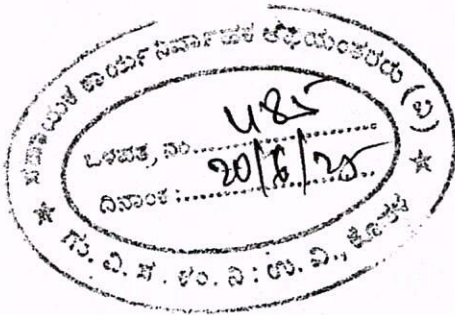 ಸಹಾಯಕ ಕಾರ್ಯನಿರ್ವಾಹಕ ಅಭಿಯಂತರರು (ವಿ)
ಒಳಪತ್ರ ನಂ. 485
ದಿನಾಂಕ : 20/6/25
ಗು. ವಿ. ಸ. ಕಂ. ನಿ: ಉ. ವಿ.,